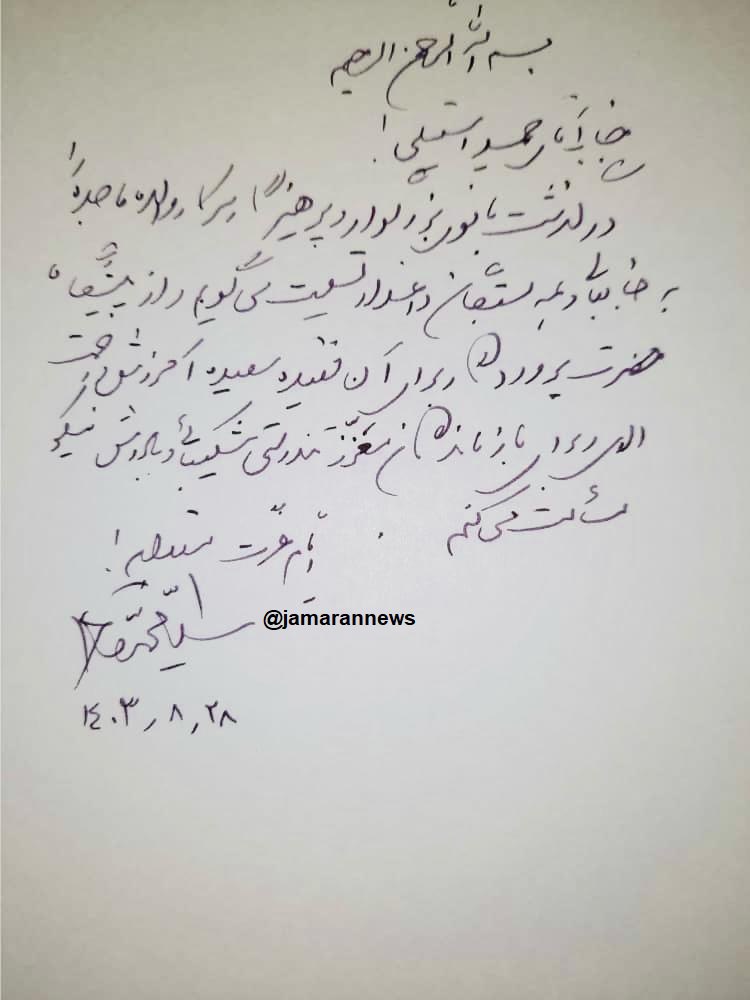 بسم الله الرحمن الرحیم
جناب آقای حمید استیلی!
درگذشت بانوی بزرگوار و پرهیزگار سرکار والده ماجده را
به جنابعالی و همه بستگان داغدار تسلیت می‌گویم و از پیشگاه
حضرت پروردگار برای آن فقیده سعیده آمرزش و رحمت
الهی و برای بازماندگان معزّز تندرستی شکیبائی و پاداش نیکو
مسألت می‌کنم.
ایام عزت مستدام!
سید محمد خاتمی
@jamarannews
۱۴۰۳٫۸٫۲۸